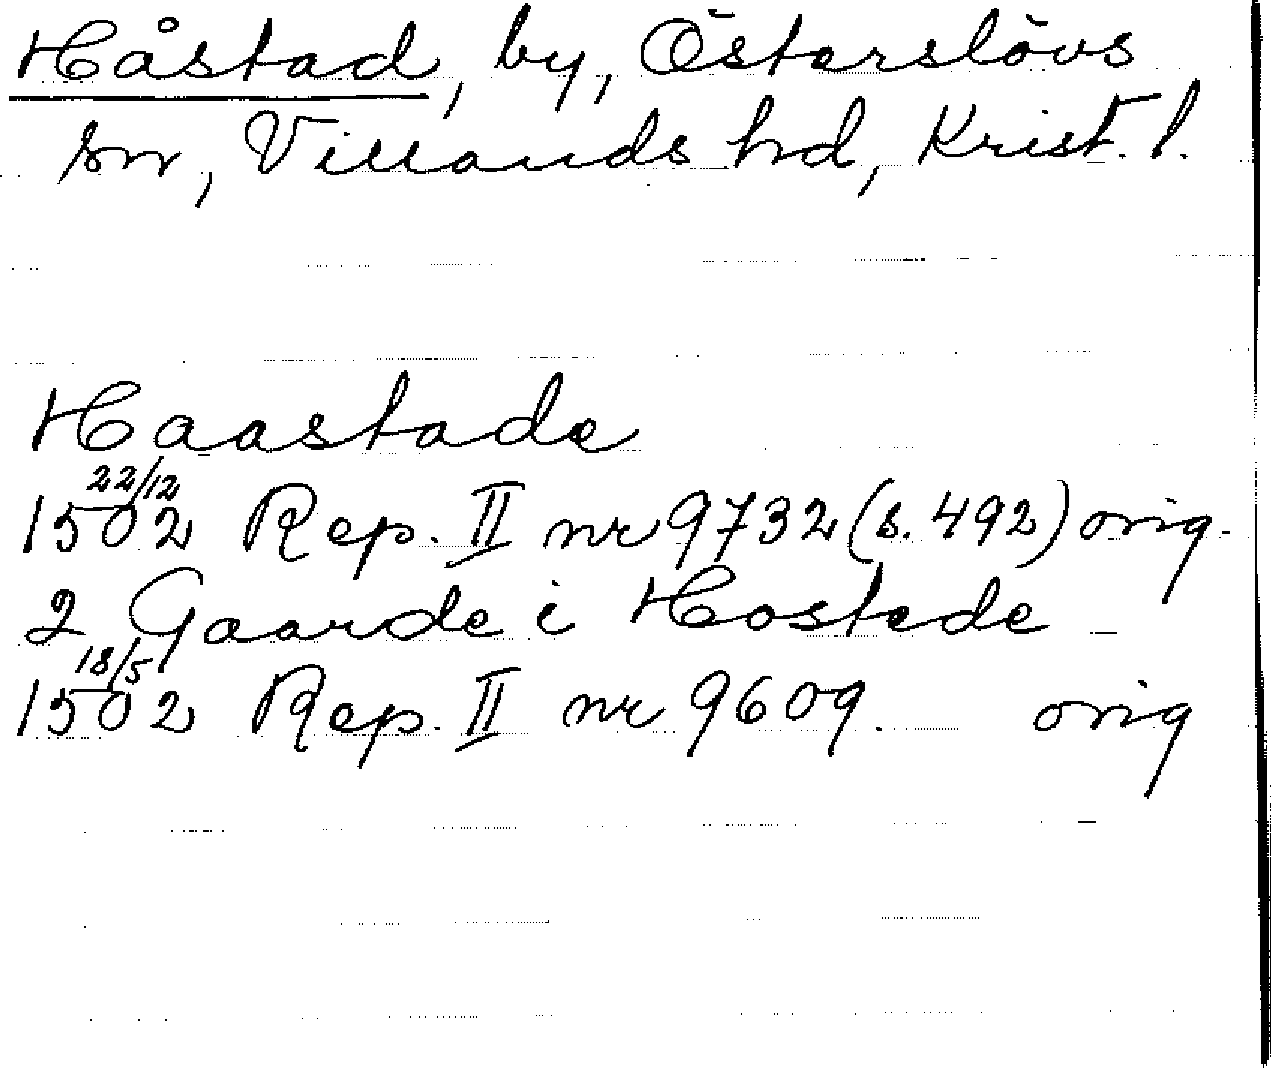 Håstad, by, Österslövs
sn, Villands hd, Krist. l.
Haastade
22/12
1502 Rep. II nr 9732 (s. 492) orig.
2 Gaarde i Hostede
18/5
1502 Rep. II nr 9609. orig